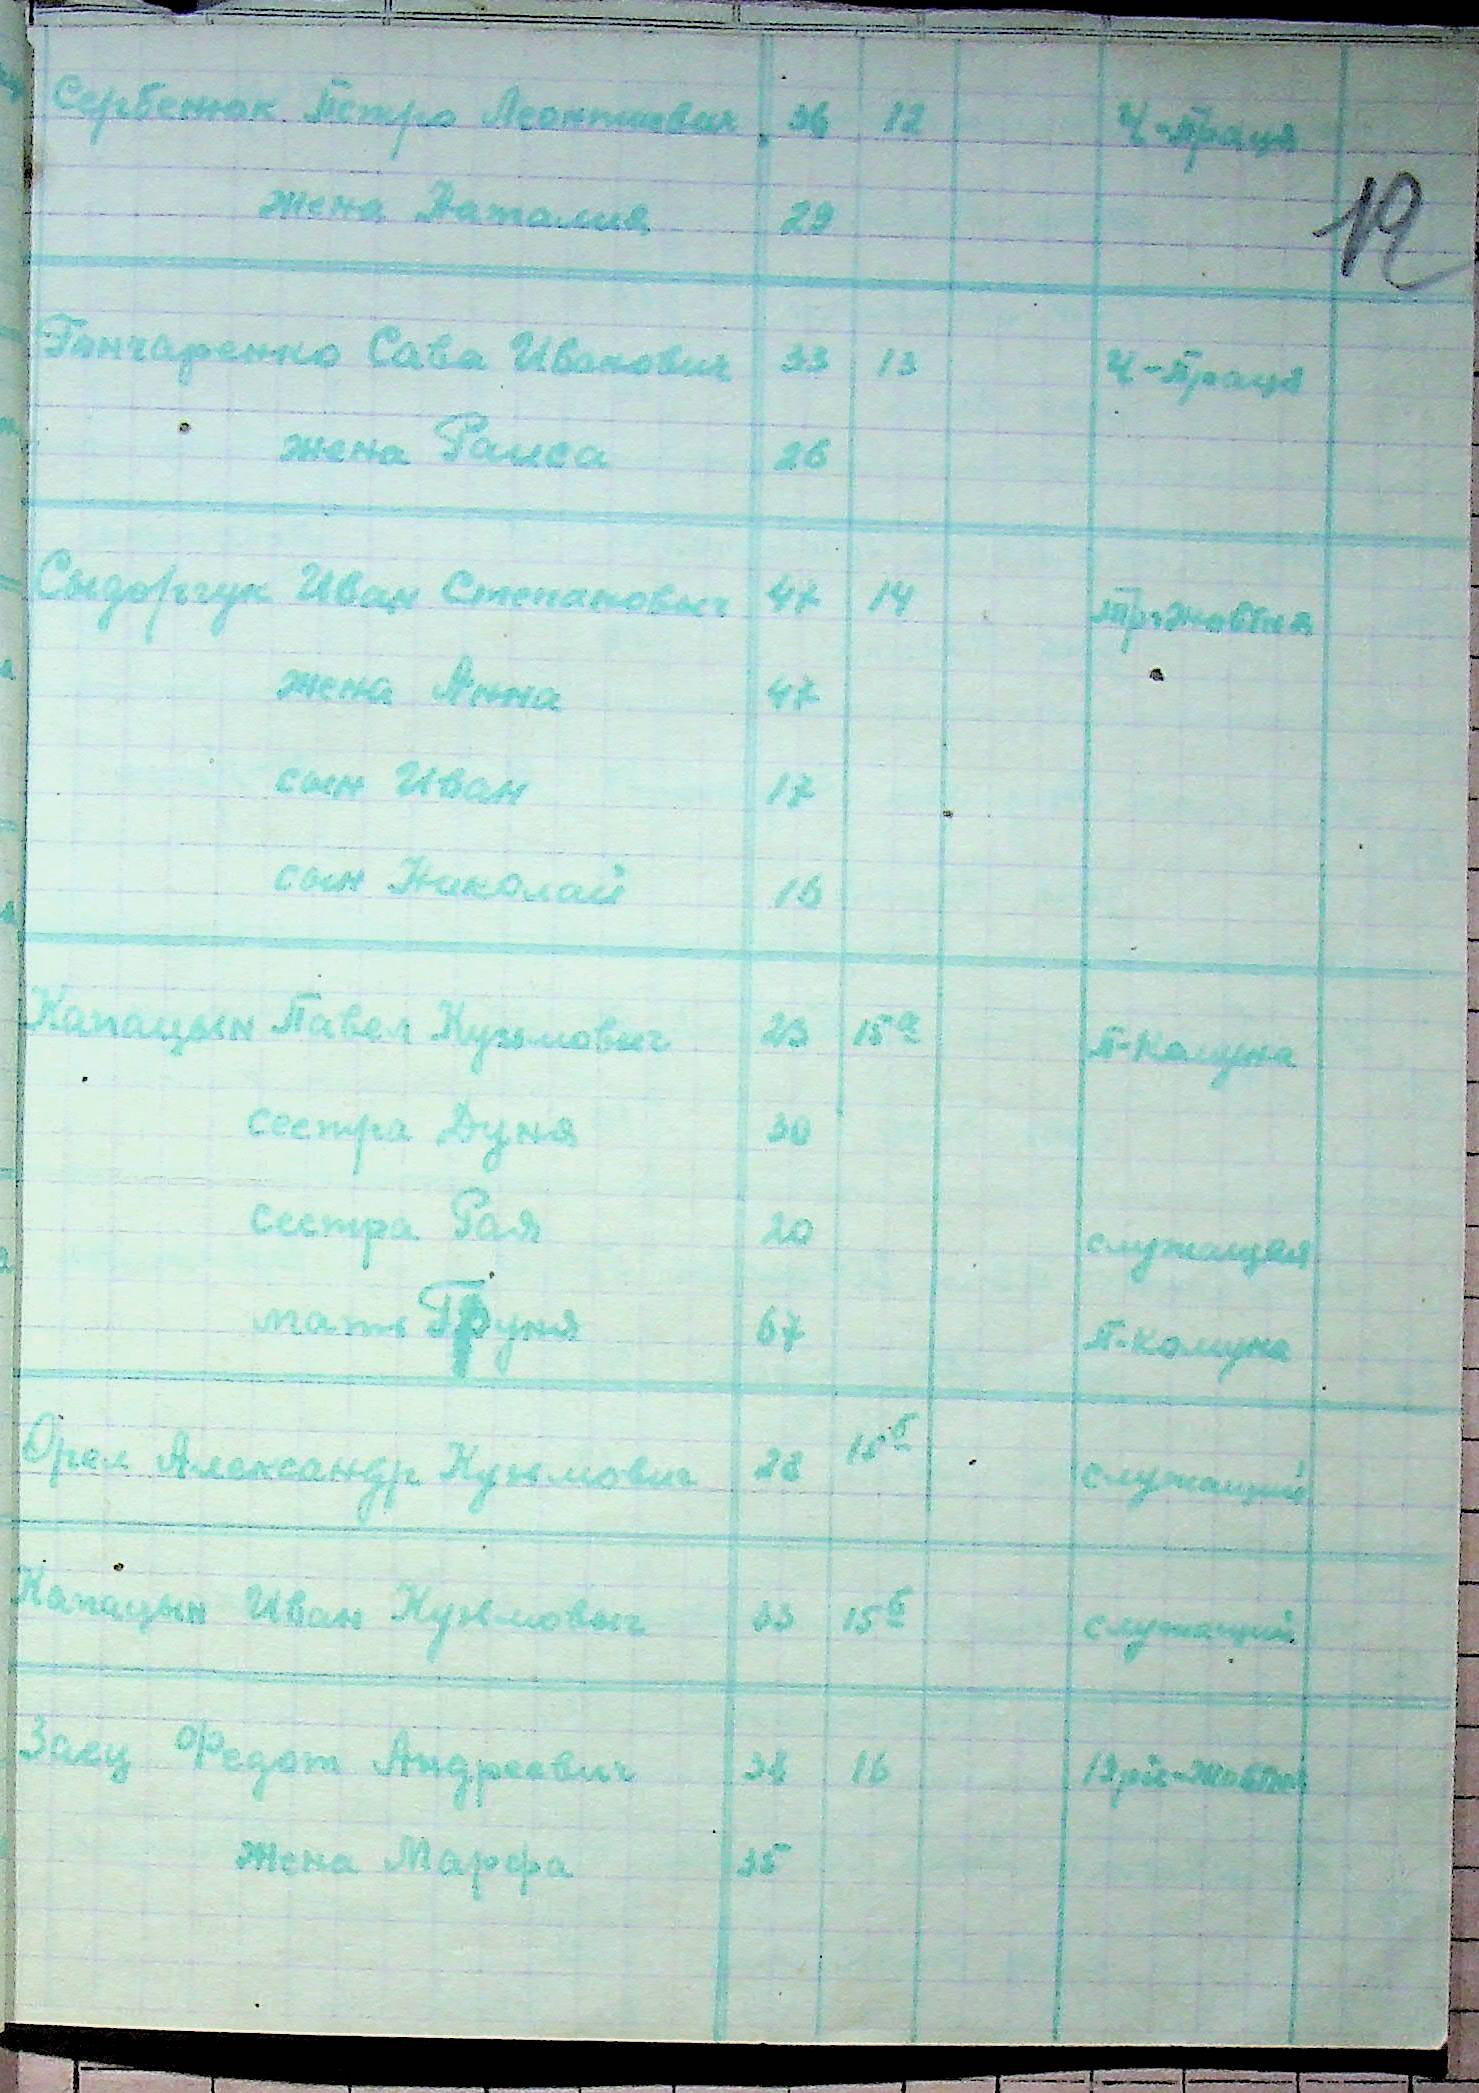 Сербенюк Петро Леонтиевич 36 12 Ч-Праця
12
жена Наталия 29
Гончаренко Сава Иванович 33 13 Ч-Праця
жена Раиса 26
Сыдорчук Иван Степановыч 47 14
жена Анна 47
сын Иван 17
сын Николай 15
Капацын Павел Кузьмовыч 23 15а П-Комуна
сестра Дуня 30
сестра Рая 20 служащая
мать Груня 67 П-комуна
Орел Александр Кузьмович 28 15б служащий
Капацын Иван Кузьмовыч 33 15б служащий
Заец Федот Андреевич 38 16
жена Марфа 35